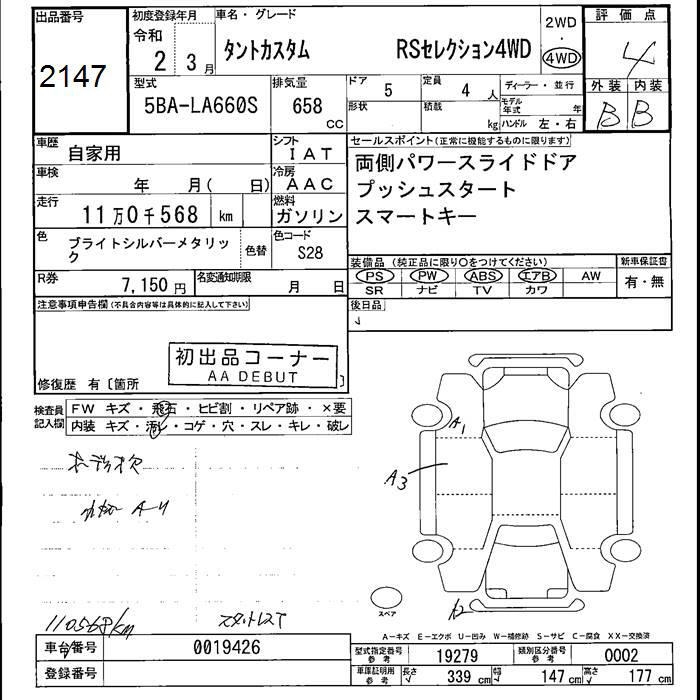 出品番号
2147
初度登録年月
令和
2 3月
車名・グレード
タントカスタム RSセレクション4WD
2WD
・
4WD
評価点
4
外装 内装
B B
型式
5BA-LA660S
排気量
658 CC
ドア 5
形状
定員 4 人
積載 kg
ディーラー・並行
モデル年式 年
ハンドル 左・右
車歴 自家用
シフト IAT
車検 年 月( 日)
冷房 AAC
走行 11万0千568 km
燃料 ガソリン
色 ブライトシルバーメタリック
色替
色コード S28
R券 7,150円
名変通知期限 月 日
セールスポイント(正常に機能するものに限ります)
両側パワースライドドア
プッシュスタート
スマートキー
装備品 (純正品に限り〇をつけてください)
新車保証書
PS PW ABS エアB AW
SR ナビ TV カワ
有・無
後日品
注意事項申告欄(不具合内容等は具体的に記入して下さい)
初出品コーナー
AA DEBUT
修復歴 有〔箇所 〕
検査員記入欄
FW キズ・飛石・ヒビ割・リペア跡・×要
内装 キズ・汚レ・コゲ・穴・スレ・キレ・破レ
A1
A3
A2
スペア
110568km
A-キズ E-エクボ U-凹み W-補修跡 S-サビ C-腐食 XX-交換済
車台番号 0019426
登録番号
型式指定番号 参考 19279
類別区分番号 参考 0002
車庫証明用 参考
長さ 339 cm
幅 147 cm
高さ 177 cm